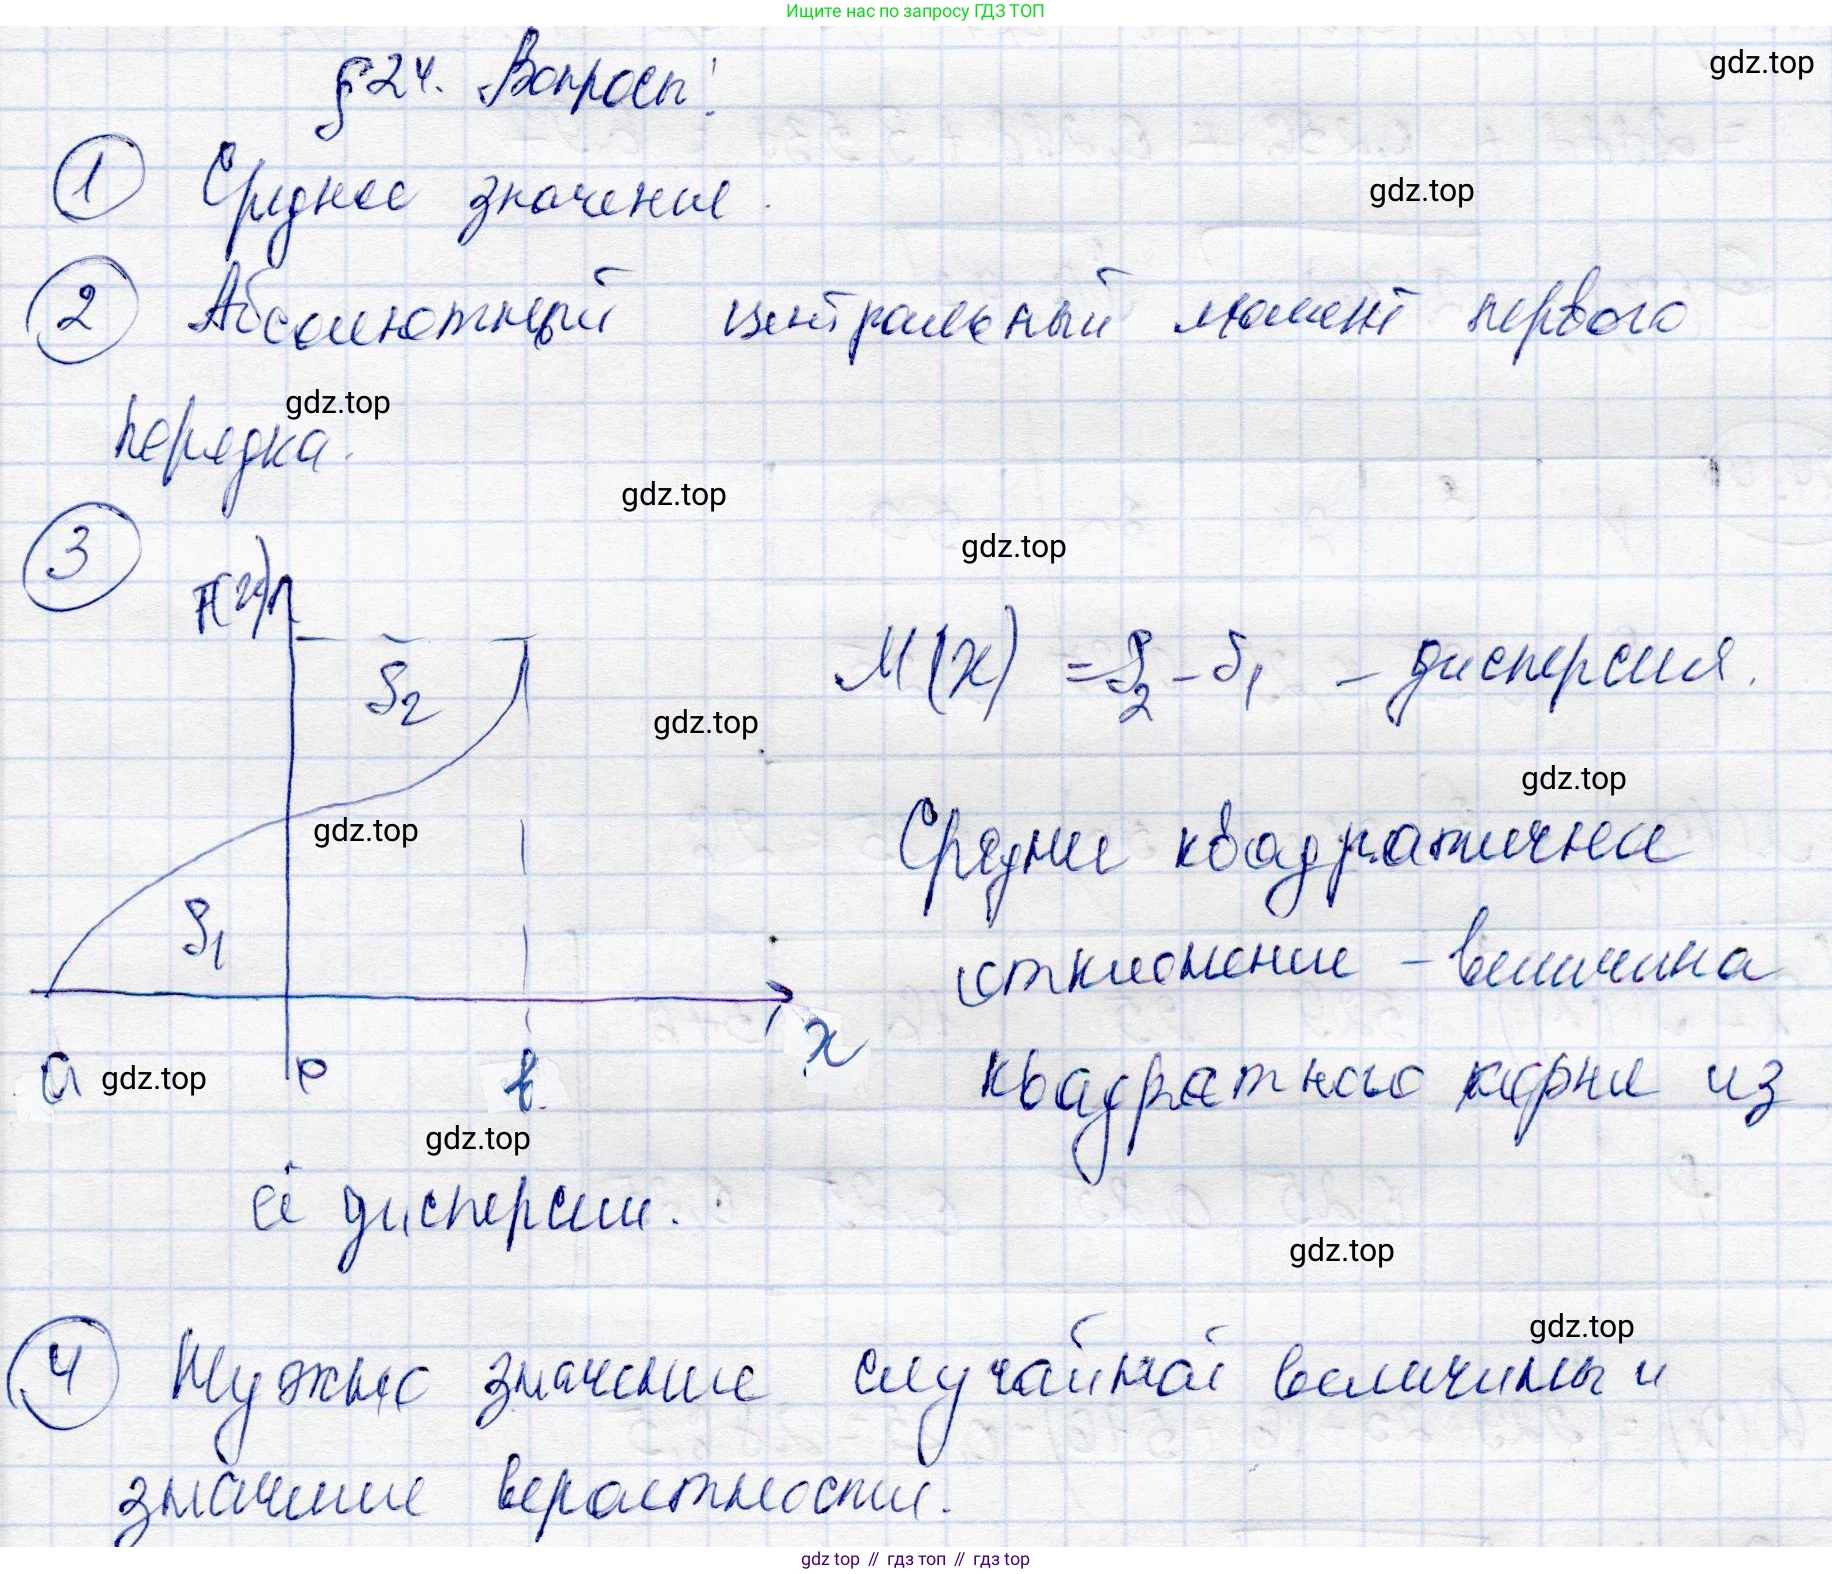 Ищите нас по запросу ГДЗ ТОП
§24. Вопросы:
gdz.top
1 Среднее значение.
gdz.top
2 Абсолютный центральный момент первого
gdz.top
порядка.
gdz.top
3
gdz.top
F(x)
S2
M(x) = S2 - S1 - дисперсия.
gdz.top
gdz.top
gdz.top
Средне квадратичное
S1
отклонение - величина
x
a gdz.top 0 b.
квадратного корня из
gdz.top
её дисперсии.
gdz.top
gdz.top
4 Нужно значение случайной величины и
значение вероятности.
gdz top // гдз топ // гдз top